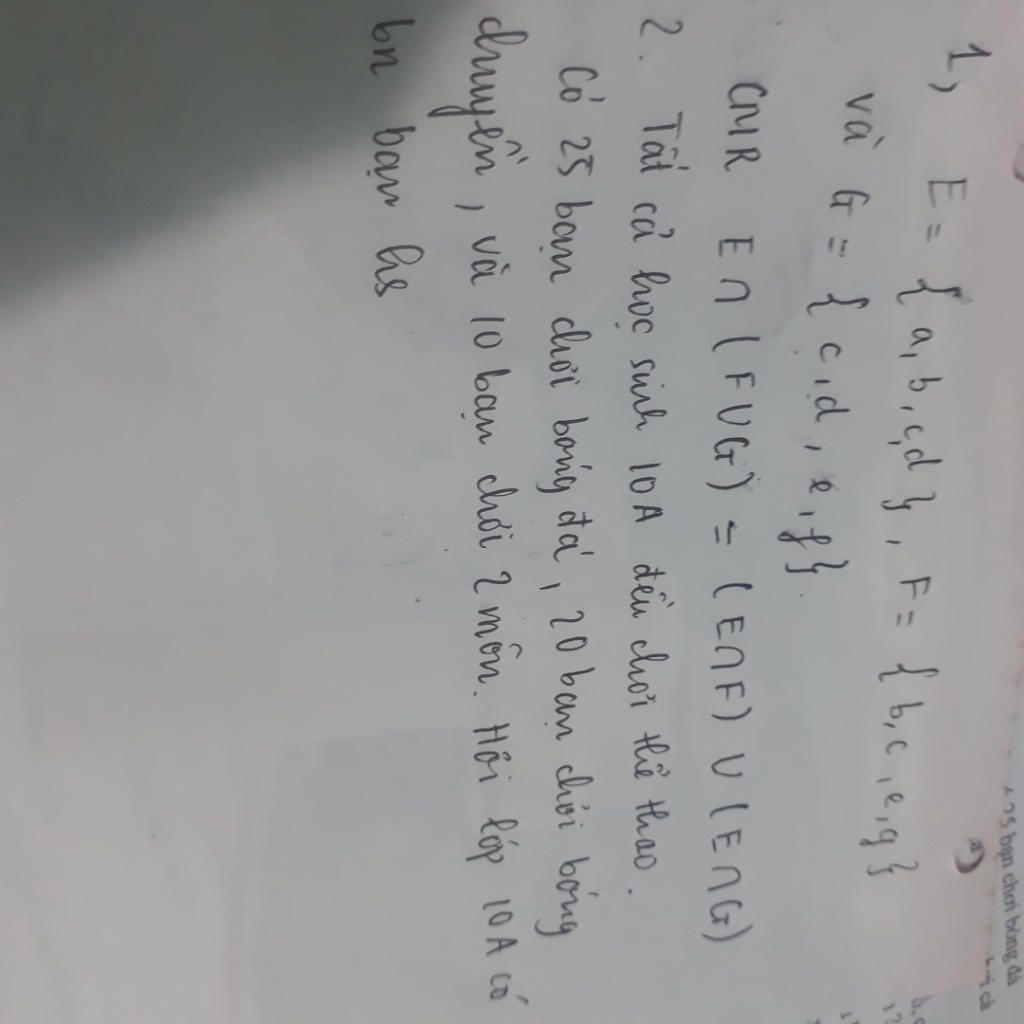 1, E = { a, b, c, d }, F = { b, c, e, g }
và G = { c, d, e, f }.
CMR E ∩ ( F ∪ G ) = ( E ∩ F ) ∪ ( E ∩ G )
2. Tất cả học sinh 10A đều chơi thể thao.
Có 25 bạn chơi bóng đá, 20 bạn chơi bóng
chuyền, và 10 bạn chơi 2 môn. Hỏi lớp 10A có
bn bạn hs
25 bạn chơi bóng đá